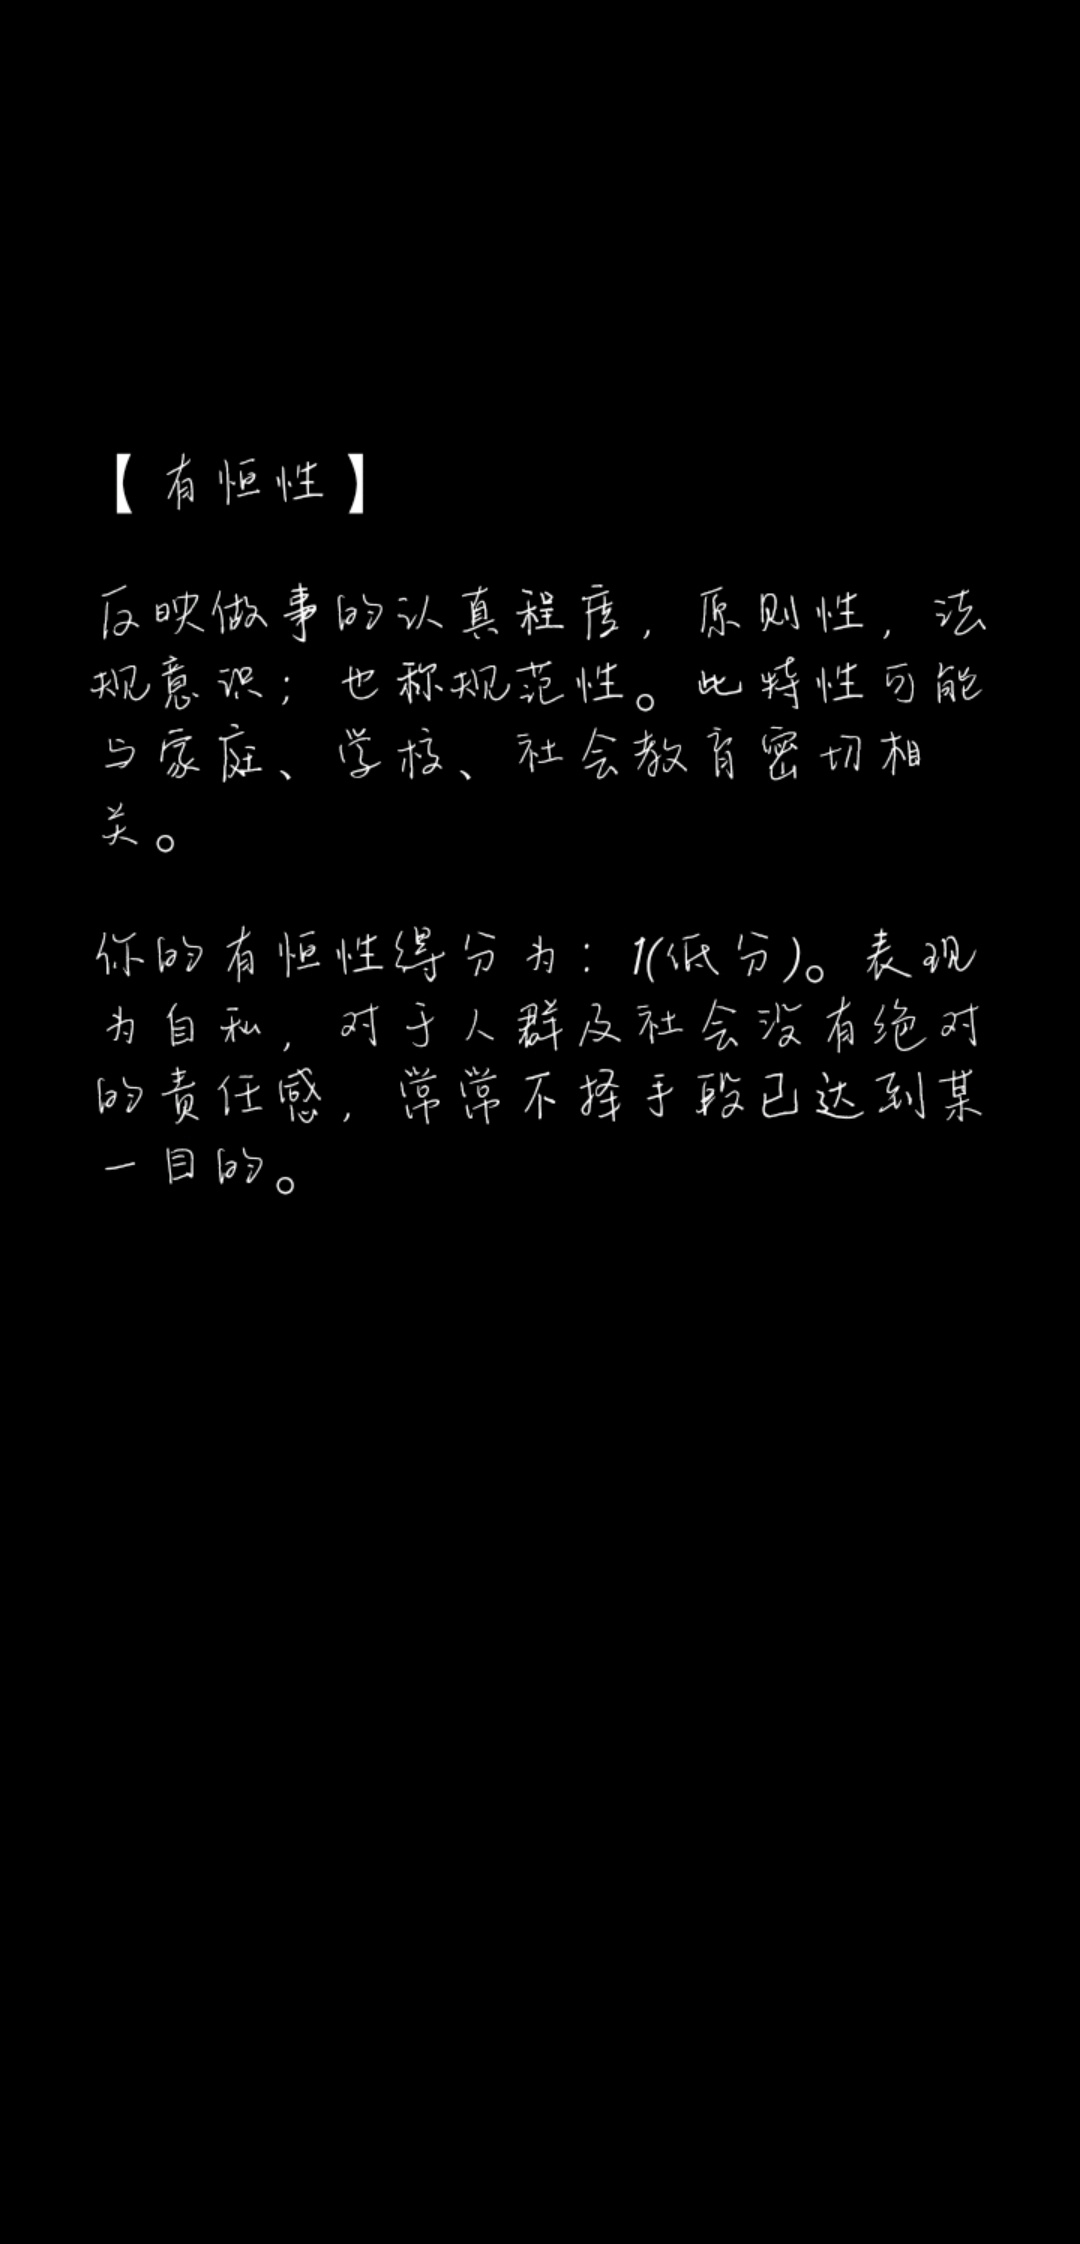 【有恒性】
反映做事的认真程度，原则性，法
规意识；也称规范性。此特性可能
与家庭、学校、社会教育密切相
关。
你的有恒性得分为：1(低分)。表现
为自私，对于人群及社会没有绝对
的责任感，常常不择手段已达到某
一目的。